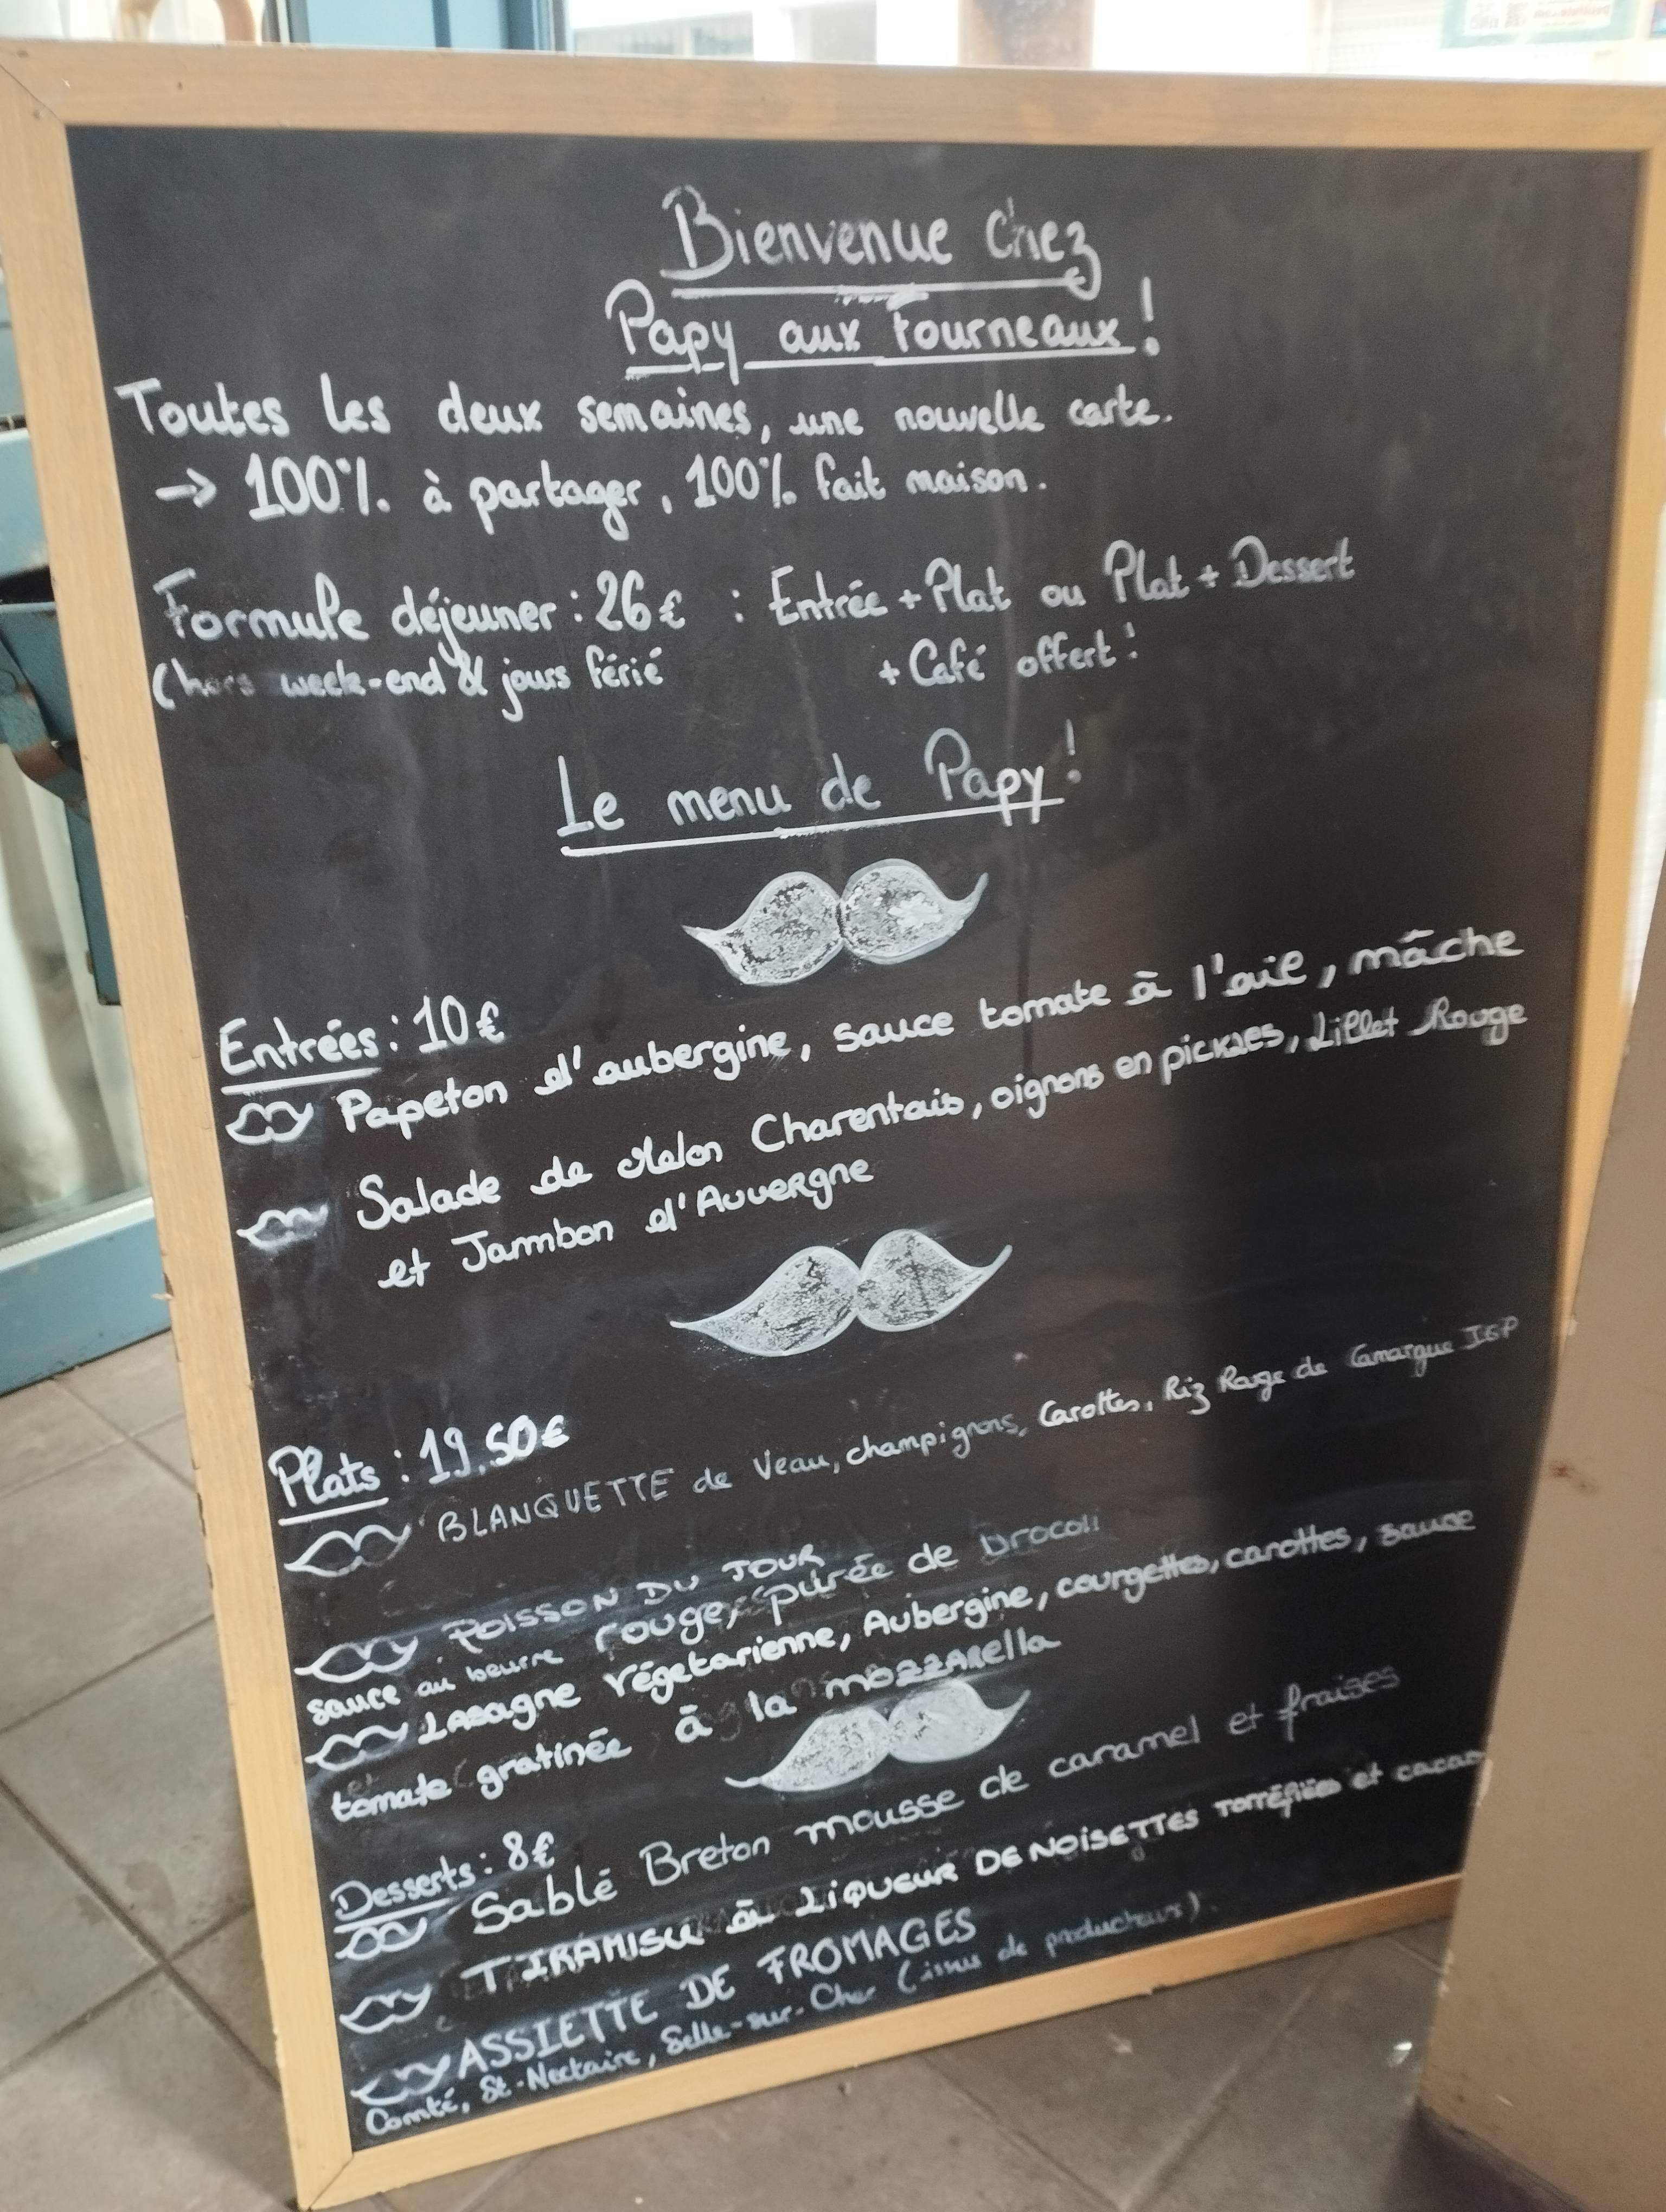 Bienvenue chez
Papy aux Fourneaux !
Toutes les deux semaines, une nouvelle carte.
→ 100% à partager, 100% fait maison.
Formule déjeuner : 26€ : Entrée + Plat ou Plat + Dessert
(hors week-end & jours férié + Café offert !
Le menu de Papy !
Entrées : 10€
Papeton d'aubergine, sauce tomate à l'ail, mâche
Salade de Melon Charentais, oignons en pickles, Lillet Rouge
et Jambon d'Auvergne
Plats : 19,50€
BLANQUETTE de Veau, champignons, Carottes, Riz Rouge de Camargue IGP
POISSON DU JOUR
sauce au beurre rouge, purée de brocoli
Lasagne végetarienne, Aubergine, courgettes, carottes, sauce
tomate gratinée à la mozzarella
Desserts : 8€
Sablé Breton mousse de caramel et fraises
TIRAMISU à LIQUEUR DE NOISETTES TORRéfiées et cacao
ASSIETTE DE FROMAGES
Comté, St-Nectaire, Selle-sur-Cher (issus de producteurs).